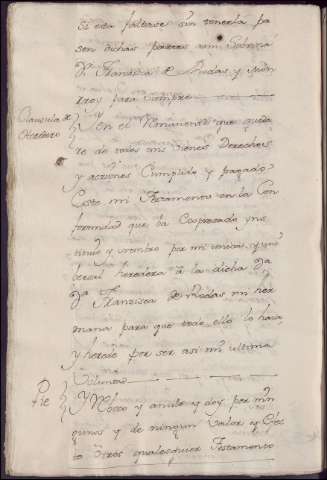 Si esta faltase sin tenerla pa
sen dichas partes a mi Sobrina
Dª Franzisca de Ruedas, y sus
para siempre
Clausula de
Heredero
Y en el Remanente que queda
re de todos mis vienes Derechos
y acziones Cumplido y pagado
Este mi Testamento en la Con
formidad que ba Expresado yns
tituio y nombro por mi unica, y uni
bersal heredera â la dicha Dª
Franzisca de Ruedas mi her
mana para que todo ello lo haia
y herede por ser asi mi ultima
Voluntad
Pie
Y Reboco y anulo y doy por nin
gunos y de ningun valor y efec
to otros qualesquier Testamento